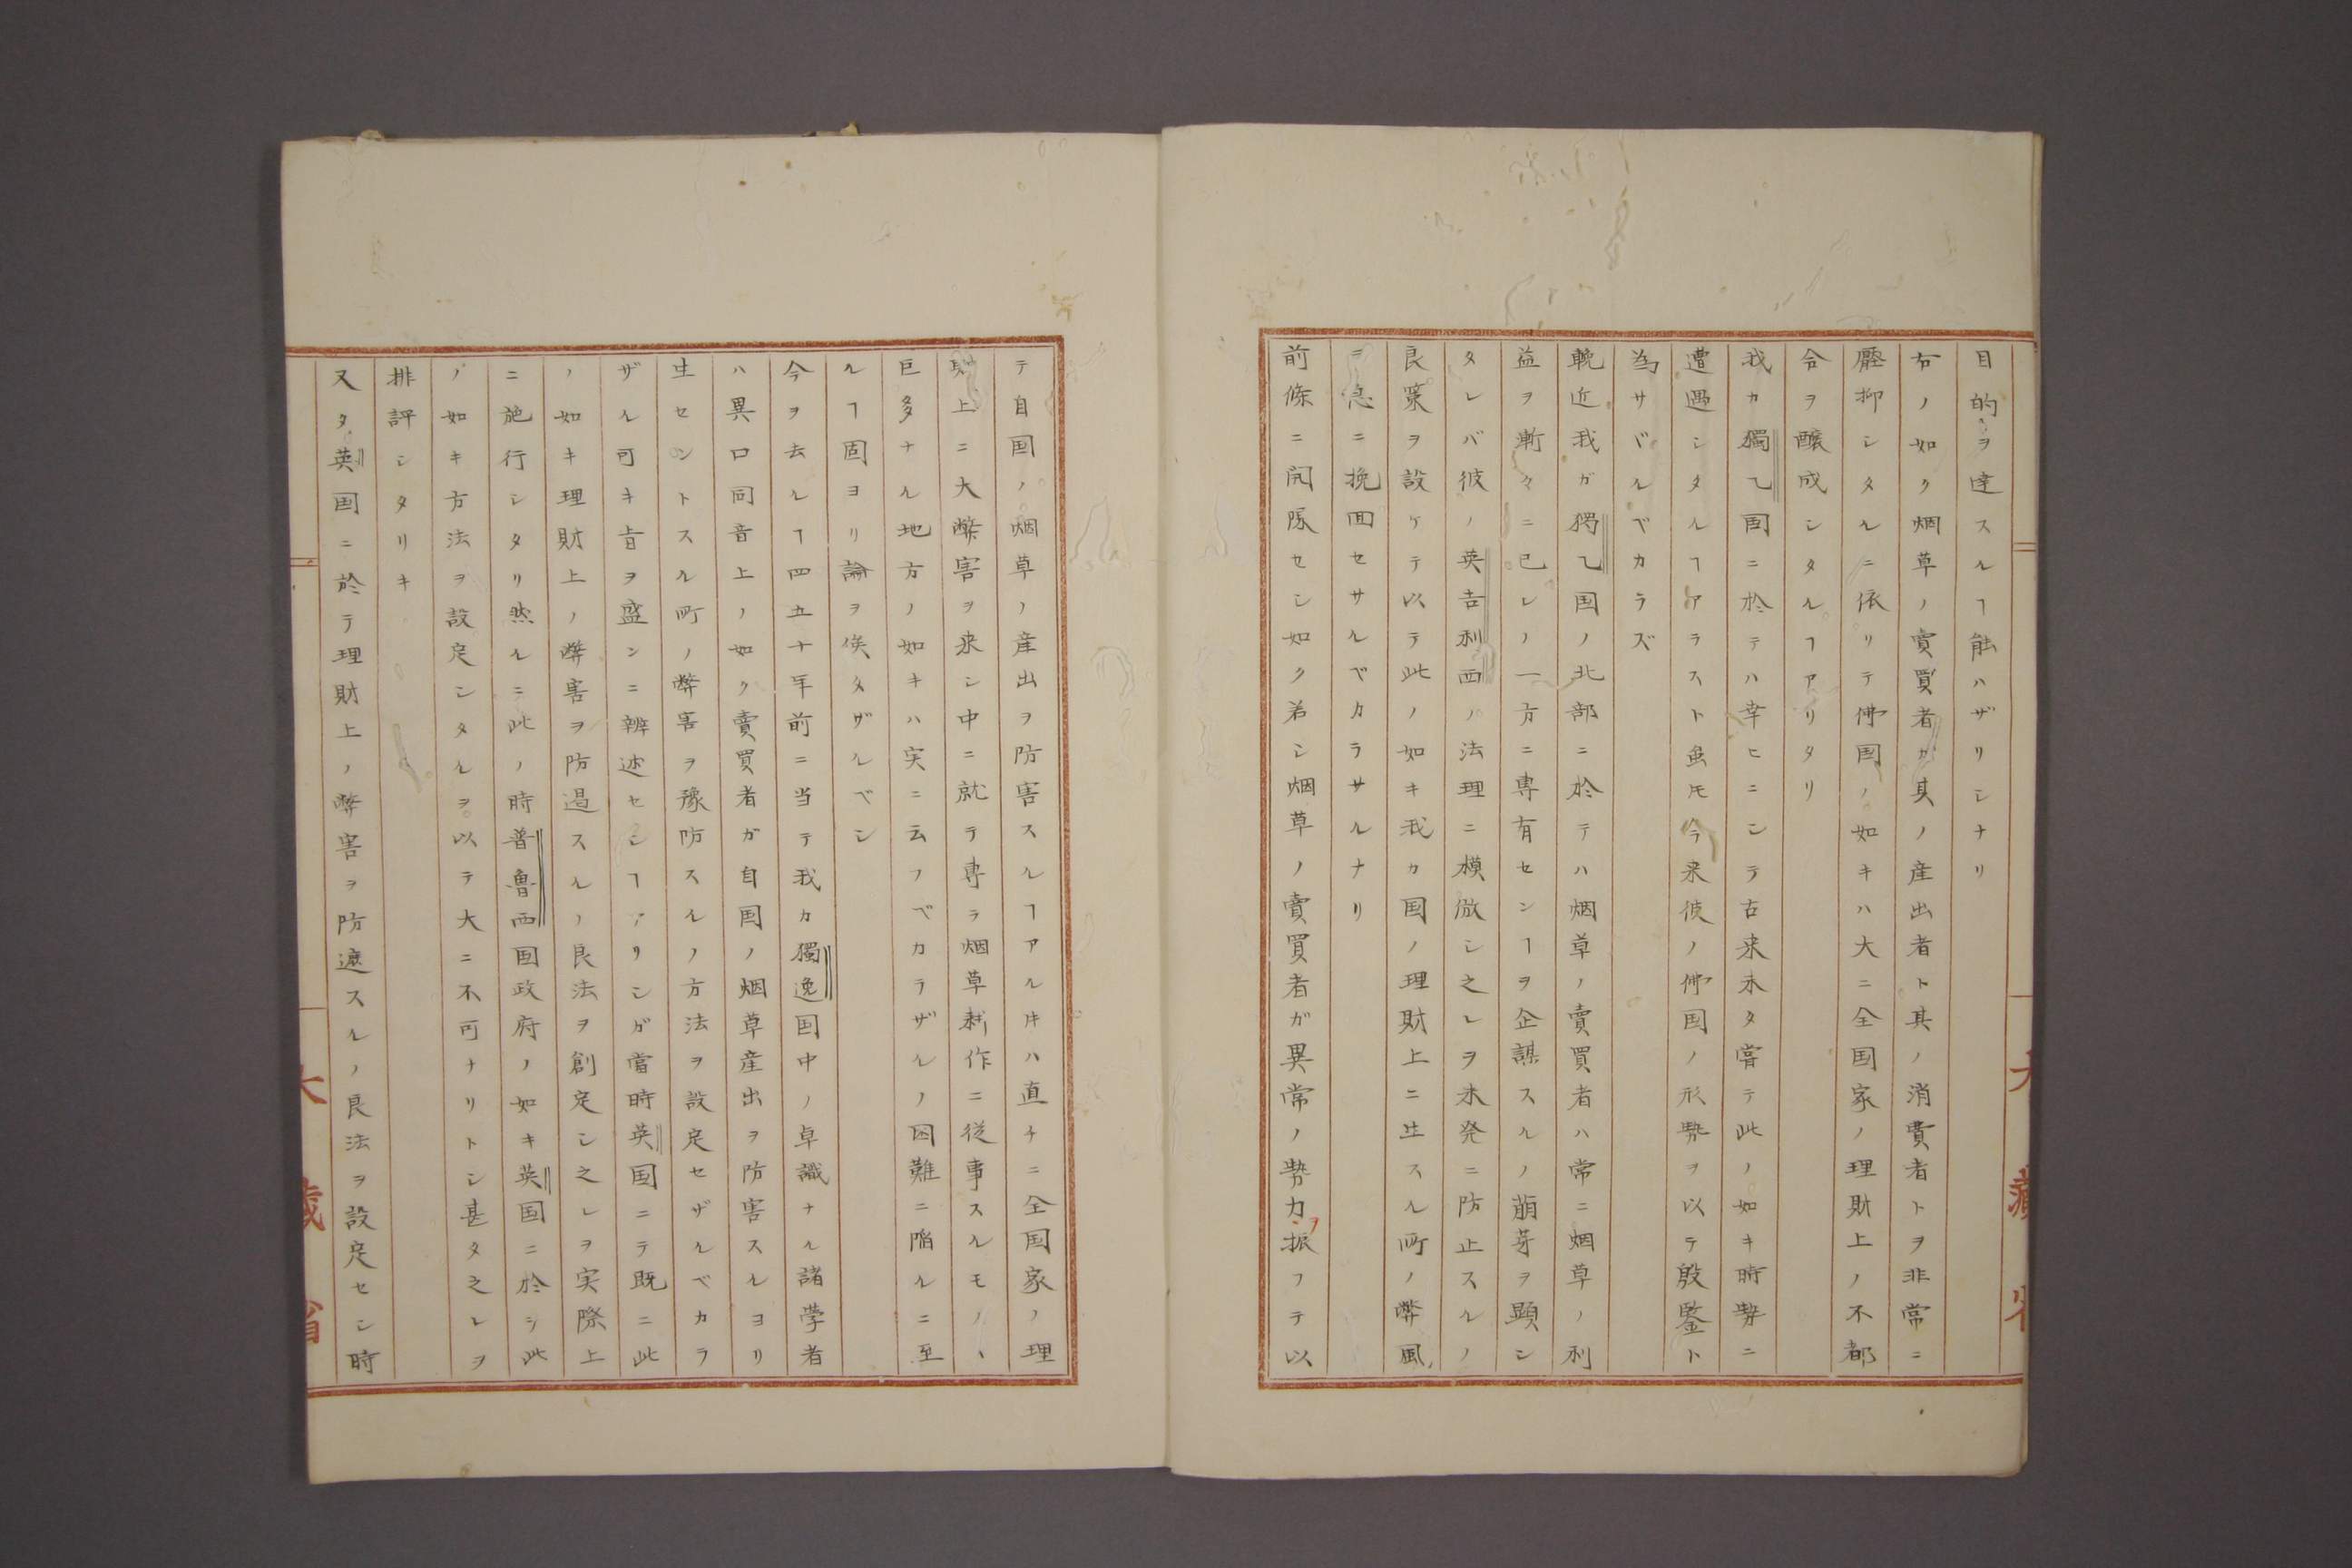 目的ヲ達スルヿ能ハザリシナリ
右ノ如ク烟草ノ賣買者ガ其ノ産出者ト其ノ消費者トヲ非常ニ
壓抑シタルニ依リテ佛国ノ如キハ大ニ全国家ノ理財上ノ不都
合ヲ醸成シタルヿアリタリ
我カ獨乙国ニ於テハ幸ヒニシテ古来未タ嘗テ此ノ如キ時勢ニ
遭遇シタルヿアラスト虽モ今来彼ノ佛国ノ形勢ヲ以テ殷鑒ト
為サヾルベカラズ
輓近我ガ獨乙国ノ北部ニ於テハ烟草ノ賣買者ハ常ニ烟草ノ利
益ヲ漸々ニ己レノ一方ニ専有センヿヲ企謀スルノ萠芽ヲ顕シ
タレバ彼ノ英吉利西ノ法理ニ模倣シ之レヲ未発ニ防止スルノ
良策ヲ設ケテ以テ此ノ如キ我カ国ノ理財上ニ生スル所ノ弊風
ヲ急ニ挽回セサルベカラサルナリ
前條ニ開陳セシ如ク若シ烟草ノ賣買者ガ異常ノ勢力ヲ振フテ以
テ自国ノ烟草ノ産出ヲ防害スルヿアル𪜈ハ直チニ全国家ノ理
財上ニ大弊害ヲ来シ中ニ就テ専ラ烟草耕作ニ従事スルモノヽ
巨多ナル地方ノ如キハ実ニ云フベカラザルノ困難ニ陥ルニ至
ルヿ固ヨリ論ヲ俟タザルベシ
今ヲ去ルヿ四五十年前ニ当テ我カ獨逸国中ノ卓識ナル諸学者
ハ異口同音上ノ如ク賣買者ガ自国ノ烟草産出ヲ防害スルヨリ
生セントスル所ノ弊害ヲ豫防スルノ方法ヲ設定セザルベカラ
ザル可キ旨ヲ盛ンニ辨述セシヿアリシガ當時英国ニテ既ニ此
ノ如キ理財上ノ弊害ヲ防遏スルノ良法ヲ創定シ之レヲ実際上
ニ施行シタリ然ルニ此ノ時普魯西国政府ノ如キ英国ニ於シ此
ノ如キ方法ヲ設定シタルヲ以テ大ニ不可ナリトシ甚タ之レヲ
排評シタリキ
又タ英国ニ於テ理財上ノ弊害ヲ防遮スルノ良法ヲ設定セシ時
大藏省